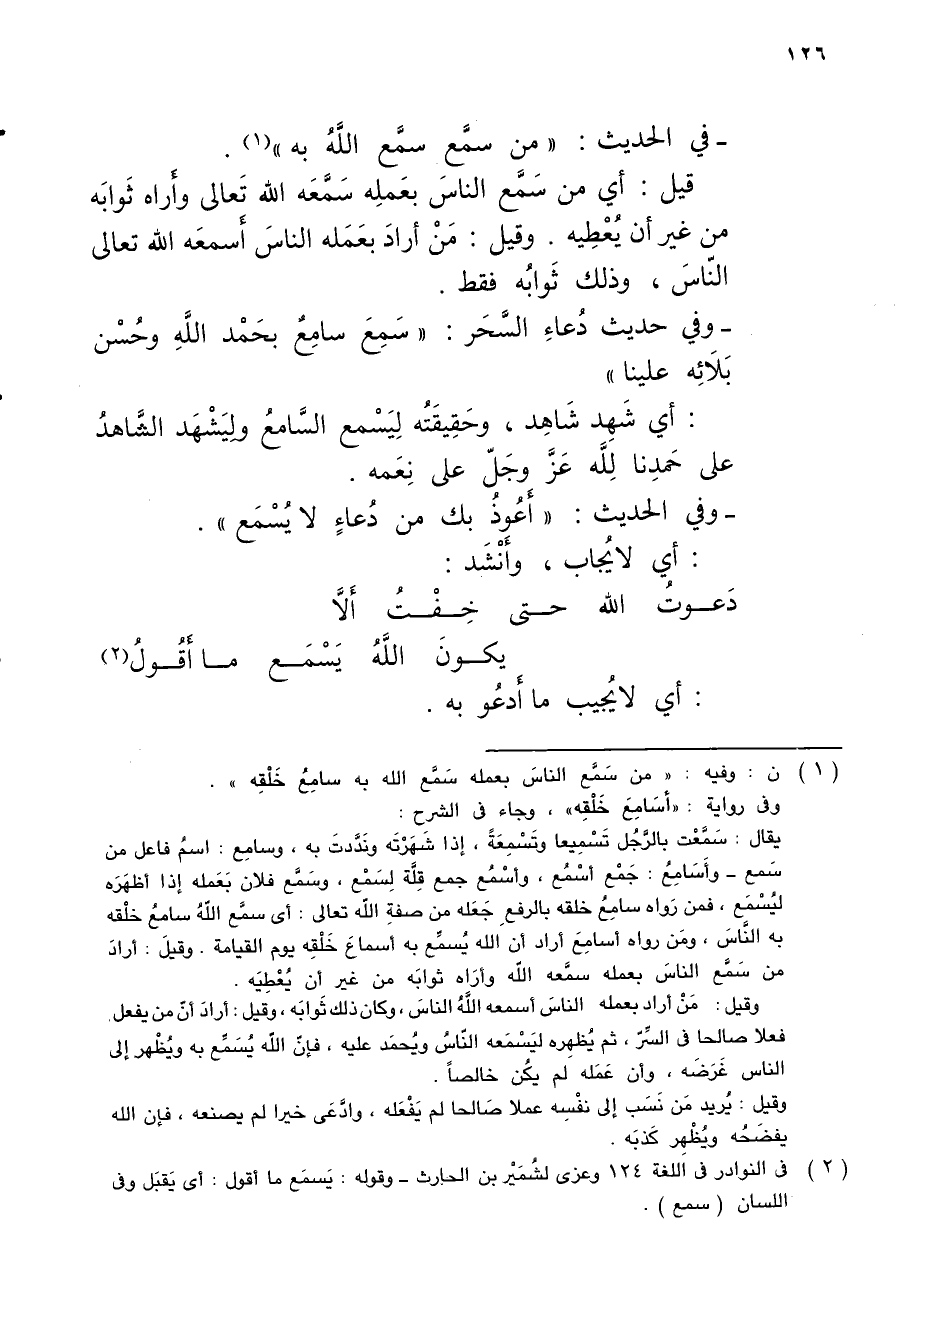 ١٢٦
ـ في الحديث : « من سمَّع سمَّع اللَّهُ به »(١) .
قيل : أي من سَمَّع الناسَ بعَملِه سَمَّعَه الله تَعالى وأَراه ثَوابَه
من غير أن يُعْطِيه . وقيل : مَنْ أرادَ بعَمَله الناسَ أَسمعَه الله تعالى
النّاسَ ، وذلك ثَوابُه فقط .
ـ وفي حديث دُعاءِ السَّحَر : « سَمِعَ سامِعٌ بحَمْد اللَّهِ وحُسْن
بَلَائِه علينا »
: أي شَهِد شَاهِد ، وحَقِيقَتُه لِيَسْمع السَّامعُ ولِيَشْهَد الشَّاهدُ
على حَمدِنا لِلَّه عَزَّ وجَلّ على نِعَمه .
ـ وفي الحديث : « أَعُوذُ بك من دُعاءٍ لا يُسْمَع » .
: أي لا يُجاب ، وأَنْشَد :
دَعـوتُ الله حـتى خِـفْـتُ أَلَّا
يكـونَ اللَّهُ يَسْمَـع مـا أَقُـولُ(٢)
: أي لا يُجيب ما أَدعُو به .
(١) ن : وفيه : « من سَمَّع الناسَ بعمله سَمَّع الله به سامِعُ خَلْقِه » .
وفى رواية : «أَسَامِعَ خَلْقِه» ، وجاء فى الشرح :
يقال : سَمَّعْت بالرَّجُل تَسْمِيعا وتَسْمِعَةً ، إذا شَهَرْتَه ونَدَّدتَ به ، وسامِع : اسمُ فاعل من
سَمع ـ وأَسَامِعُ : جَمْع أسْمُع ، وأسْمُع جمع قِلَّة لِسَمْع ، وسَمَّع فلان بَعَمله إذا أظهَرَه
ليُسْمَع ، فمن رَواه سامِعُ خلقه بالرفع جَعَله من صفةِ الله تعالى : أى سمَّع اللَّهُ سامعُ خلْقه
به النَّاسَ ، ومَن رواه أسامِعَ أراد أن الله يُسمِّع به أسماعَ خَلْقِه يوم القيامة . وقيلَ : أرادَ
من سَمَّع الناسَ بعمله سمَّعه اللّه وأرَاه ثوابَه من غير أن يُعْطِيَه .
وقيل : مَنْ أراد بعمله الناسَ أسمعه اللَّهُ الناسَ ، وكان ذلك ثَوابَه ، وقيل : أرادَ أنّ من يفعل
فعلا صالحا فى السِّرّ ، ثم يُظهِره ليَسْمَعه النّاسُ ويُحمَد عليه ، فإنّ الله يُسَمِّع به ويُظْهر إلى
الناس غَرَضَه ، وأن عَمَله لم يكُن خالصاً .
وقيل : يُريد مَن نَسَب إلى نفْسِه عملا صَالحا لم يَفْعَله ، وادَّعَى خيرا لم يصنعه ، فإن الله
يفضَحُه ويُظْهِر كَذبَه .
(٢) فى النوادر فى اللغة ١٢٤ وعزى لشُمَيْر بن الحارث ـ وقوله : يَسمَع ما أقول : أى يَقبَل وفى
اللسان ( سمع ) .